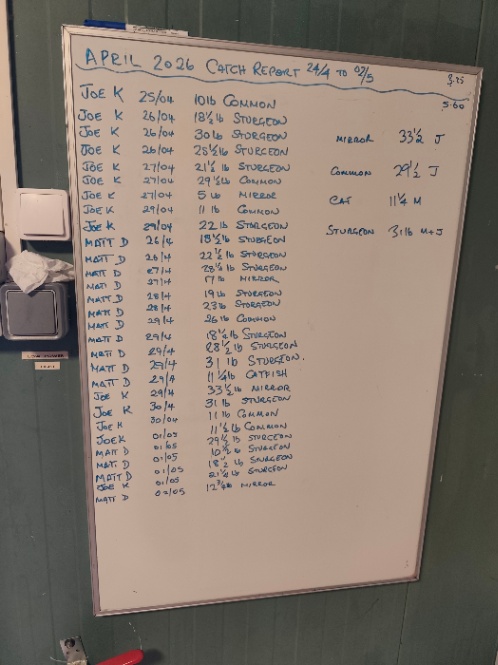 APRIL 2026 CATCH REPORT 24/4 TO 02/5
5.60
JOE K 25/04 10lb COMMON
JOE K 26/04 18½ lb STURGEON
JOE K 26/04 30lb STURGEON
JOE K 26/04 25½ lb STURGEON
JOE K 27/04 21½ lb STURGEON
JOE K 27/04 29½ lb COMMON
JOE K 27/04 5 lb MIRROR
JOE K 29/04 11 lb COMMON
JOE K 29/04 22 lb STURGEON
MATT D 26/4 18½ lb STURGEON
MATT D 26/4 22½ lb STURGEON
MATT D 27/4 28½ lb STURGEON
MATT D 27/4 17 lb MIRROR
MATT D 28/4 19lb STURGEON
MATT D 28/4 23lb STURGEON
MATT D 29/4 26 lb COMMON
MATT D 29/4 18½ lb STURGEON
MATT D 29/4 28½ lb STURGEON
MATT D 29/4 31 lb STURGEON.
MATT D 29/4 11¼lb CATFISH
JOE K 29/4 33½ lb MIRROR
JOE K 30/4 31 lb STURGEON
JOE K 30/04 11 lb COMMON
JOE K 01/05 11½ lb COMMON
MATT D 01/05 29½ lb STURGEON
MATT D 01/05 10½ lb STURGEON
MATT D 01/05 18½ lb STURGEON
JOE K 01/05 21¼ lb STURGEON
MATT D 02/05 12¾lb MIRROR
MIRROR 33½ J
COMMON 29½ J
CAT 11¼ M
STURGEON 31lb M+J